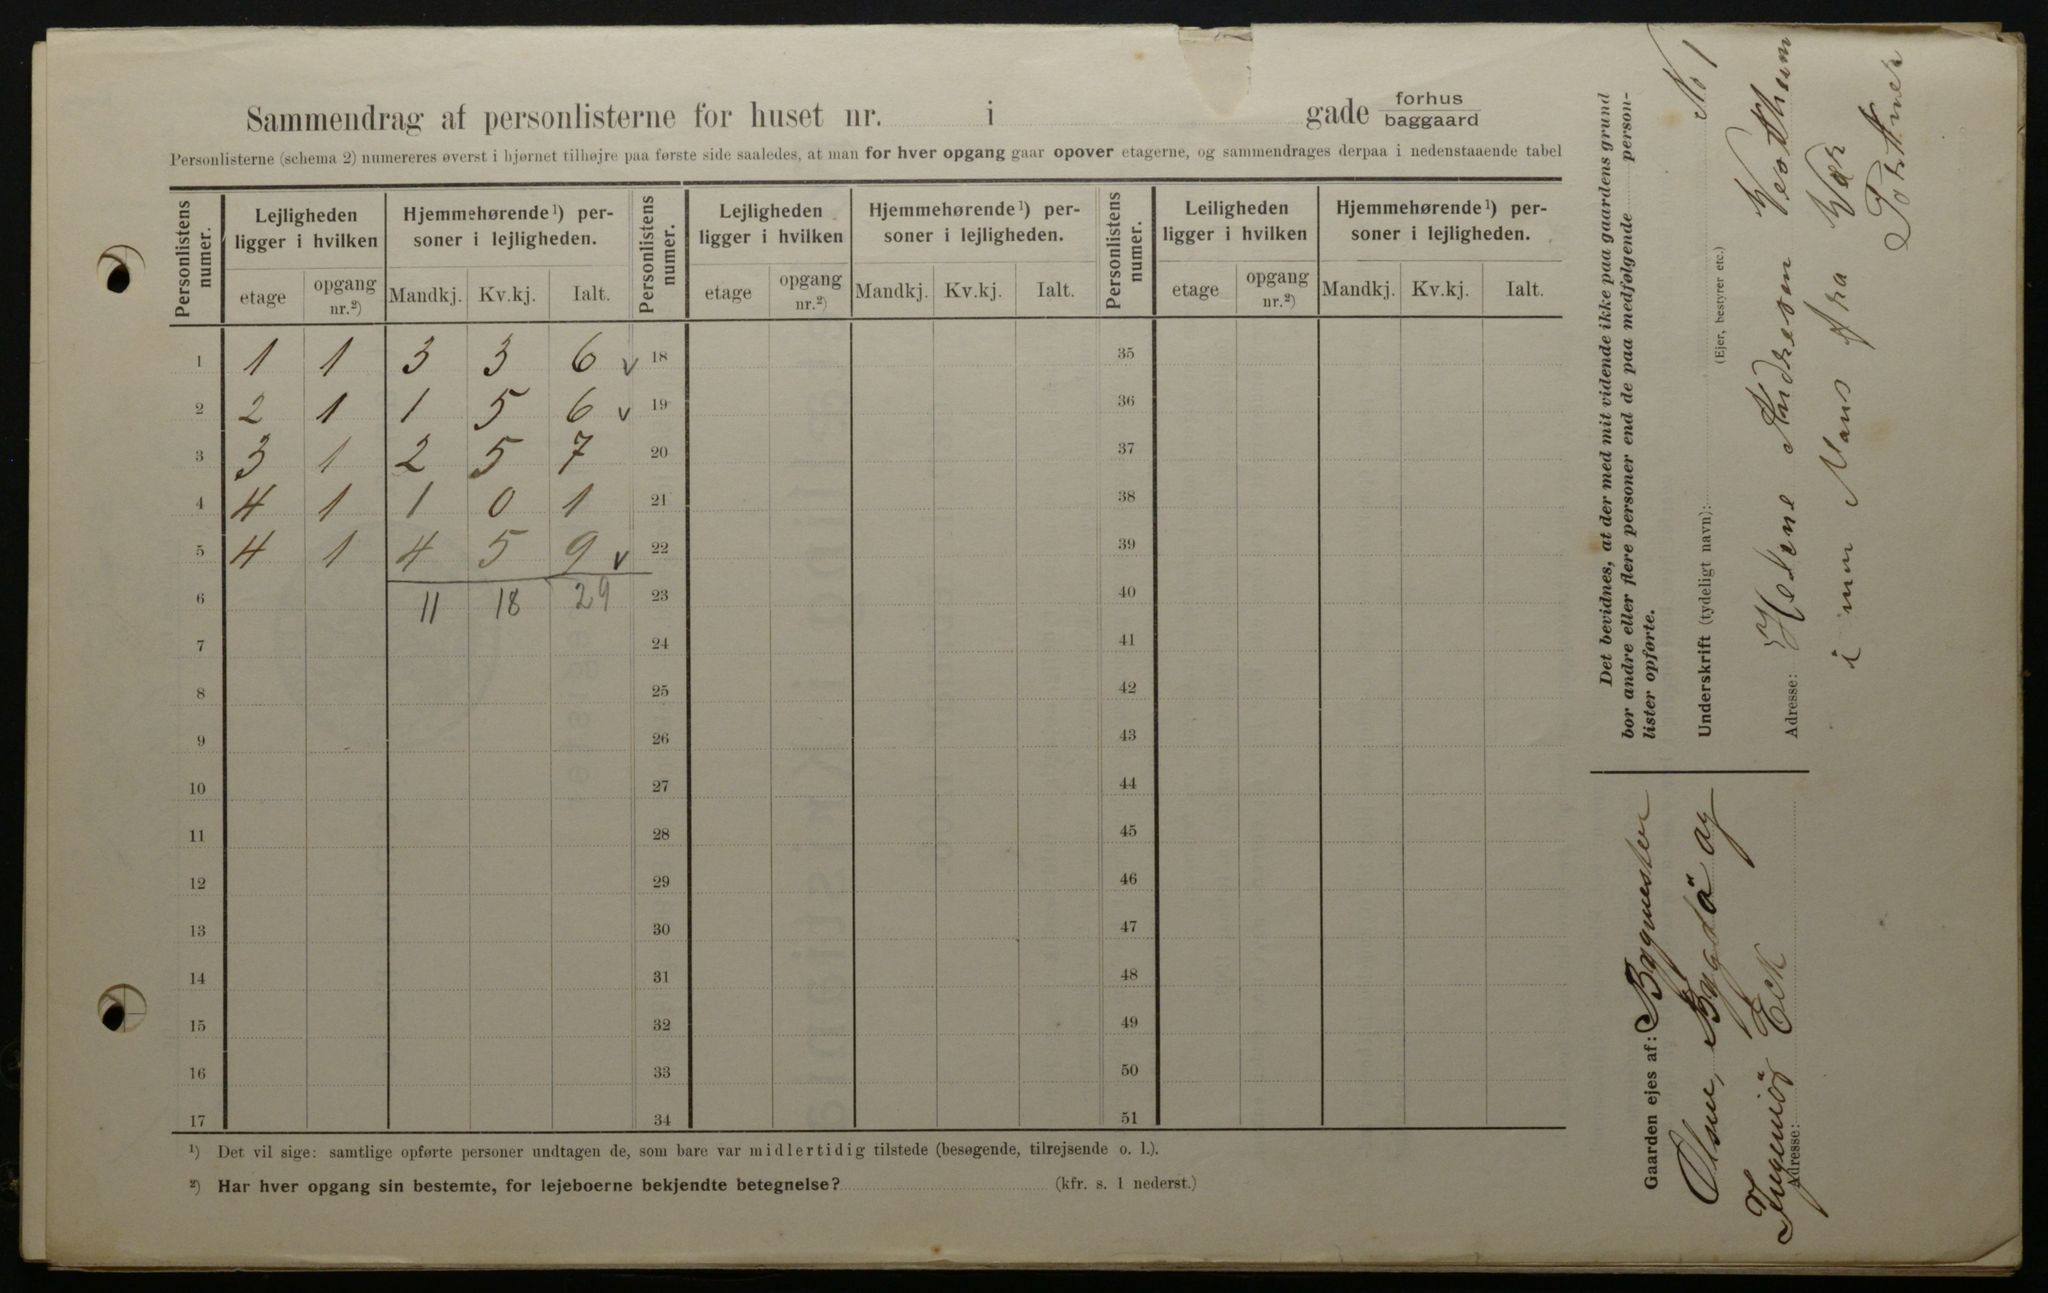 Sammendrag af personlisterne for huset nr. i gade forhus baggaard
Personlisterne (schema 2) numereres øverst i hjørnet tilhøjre paa første side saaledes, at man for hver opgang gaar opover etagerne, og sammendrages derpaa i nedenstaaende tabel
Personlistens numer.
Lejligheden ligger i hvilken
Hjemmehørende ¹) personer i lejligheden.
etage opgang nr.²) Mandkj. Kv.kj. Ialt.
Personlistens numer.
Lejligheden ligger i hvilken
Hjemmehørende ¹) personer i lejligheden.
etage opgang nr.²) Mandkj. Kv.kj. Ialt.
Personlistens numer.
Leiligheden ligger i hvilken
Hjemmehørende ¹) personer i lejligheden.
etage opgang nr.²) Mandkj. Kv.kj. Ialt.
1 1 1 3 3 6 v 18 35
2 2 1 1 5 6 v 19 36
3 3 1 2 5 7 20 37
4 4 1 1 0 1 21 38
5 4 1 4 5 9 v 22 39
6 11 18 29 23 40
7 24 41
8 25 42
9 26 43
10 27 44
11 28 45
12 29 46
13 30 47
14 31 48
15 32 49
16 33 50
17 34 51
¹) Det vil sige: samtlige opførte personer undtagen de, som bare var midlertidig tilstede (besøgende, tilrejsende o. l.).
²) Har hver opgang sin bestemte, for lejeboerne bekjendte betegnelse? (kfr. s. 1 nederst.)
Det bevidnes, at der med mit vidende ikke paa gaardens grund
bor andre eller flere personer end de paa medfølgende person-
lister opførte.
Underskrift (tydeligt navn): No 1
(Ejer, bestyrer etc.)
Helene Andresen
Adresse:
i min Mans fra Vær
Gaarden ejes af: Bygmester
Olsen, Bygdö og
Ingeniör Eck
Adresse: